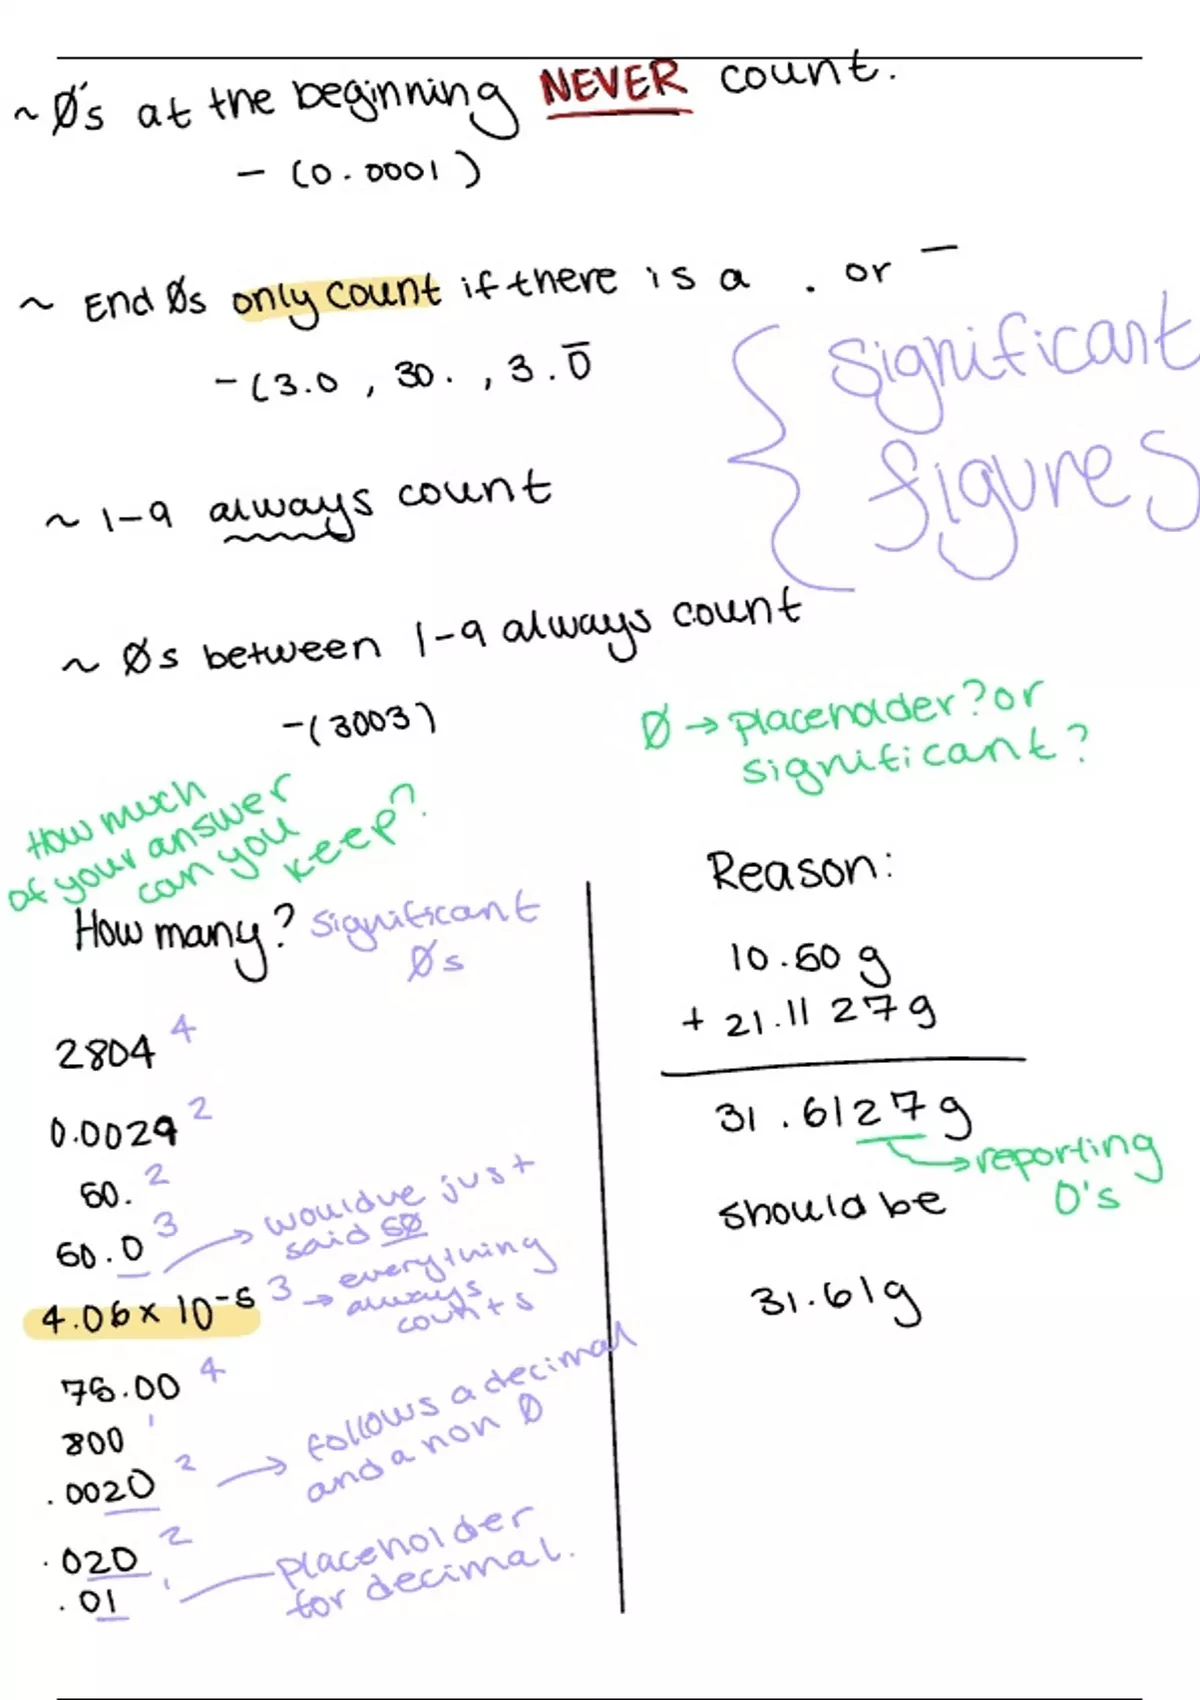 ~ Ø's at the beginning NEVER count.
- (0.0001)
~ End Øs only count if there is a . or ‾
- (3.0, 30., 3.0̅
significant
figures
~ 1-9 always count
~ Øs between 1-9 always count
- (3003)
Ø → placeholder? or
significant?
How much
of your answer
can you
keep?
How many? significant
Øs
2804 4
0.0029 2
50. 2
50.0 3 → would've just
said 50
4.06 x 10⁻⁵ 3 → everything
always
counts
75.00 4
800 1
.0020 2 → follows a decimal
and a non Ø
.020 2
.01 1 placeholder
for decimal.
Reason:
10.50 g
+ 21.1127g
31.6127g
→ reporting
0's
should be
31.61g